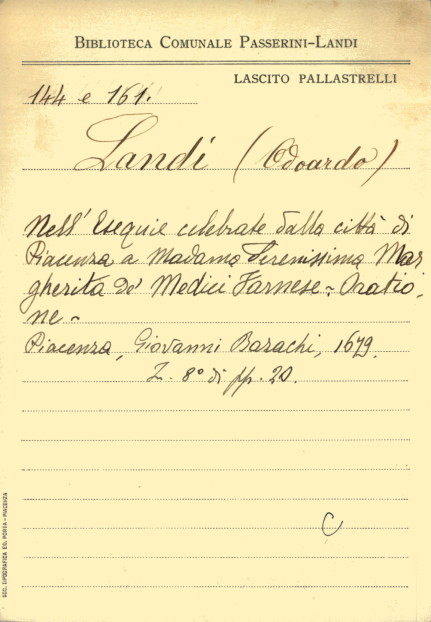 BIBLIOTECA COMUNALE PASSERINI-LANDI
LASCITO PALLASTRELLI
144 e 161.
Landi (Odoardo)
Nell' Esequie celebrate dalla città di
Piacenza a Madama Serenissima Mar
gherita de' Medici Farnese - Oratio-
ne -
Piacenza, Giovanni Bazachi, 1679.
Z. 8° di pp. 20.
C
SOC. TIPOGRAFICA ED. PORTA - PIACENZA